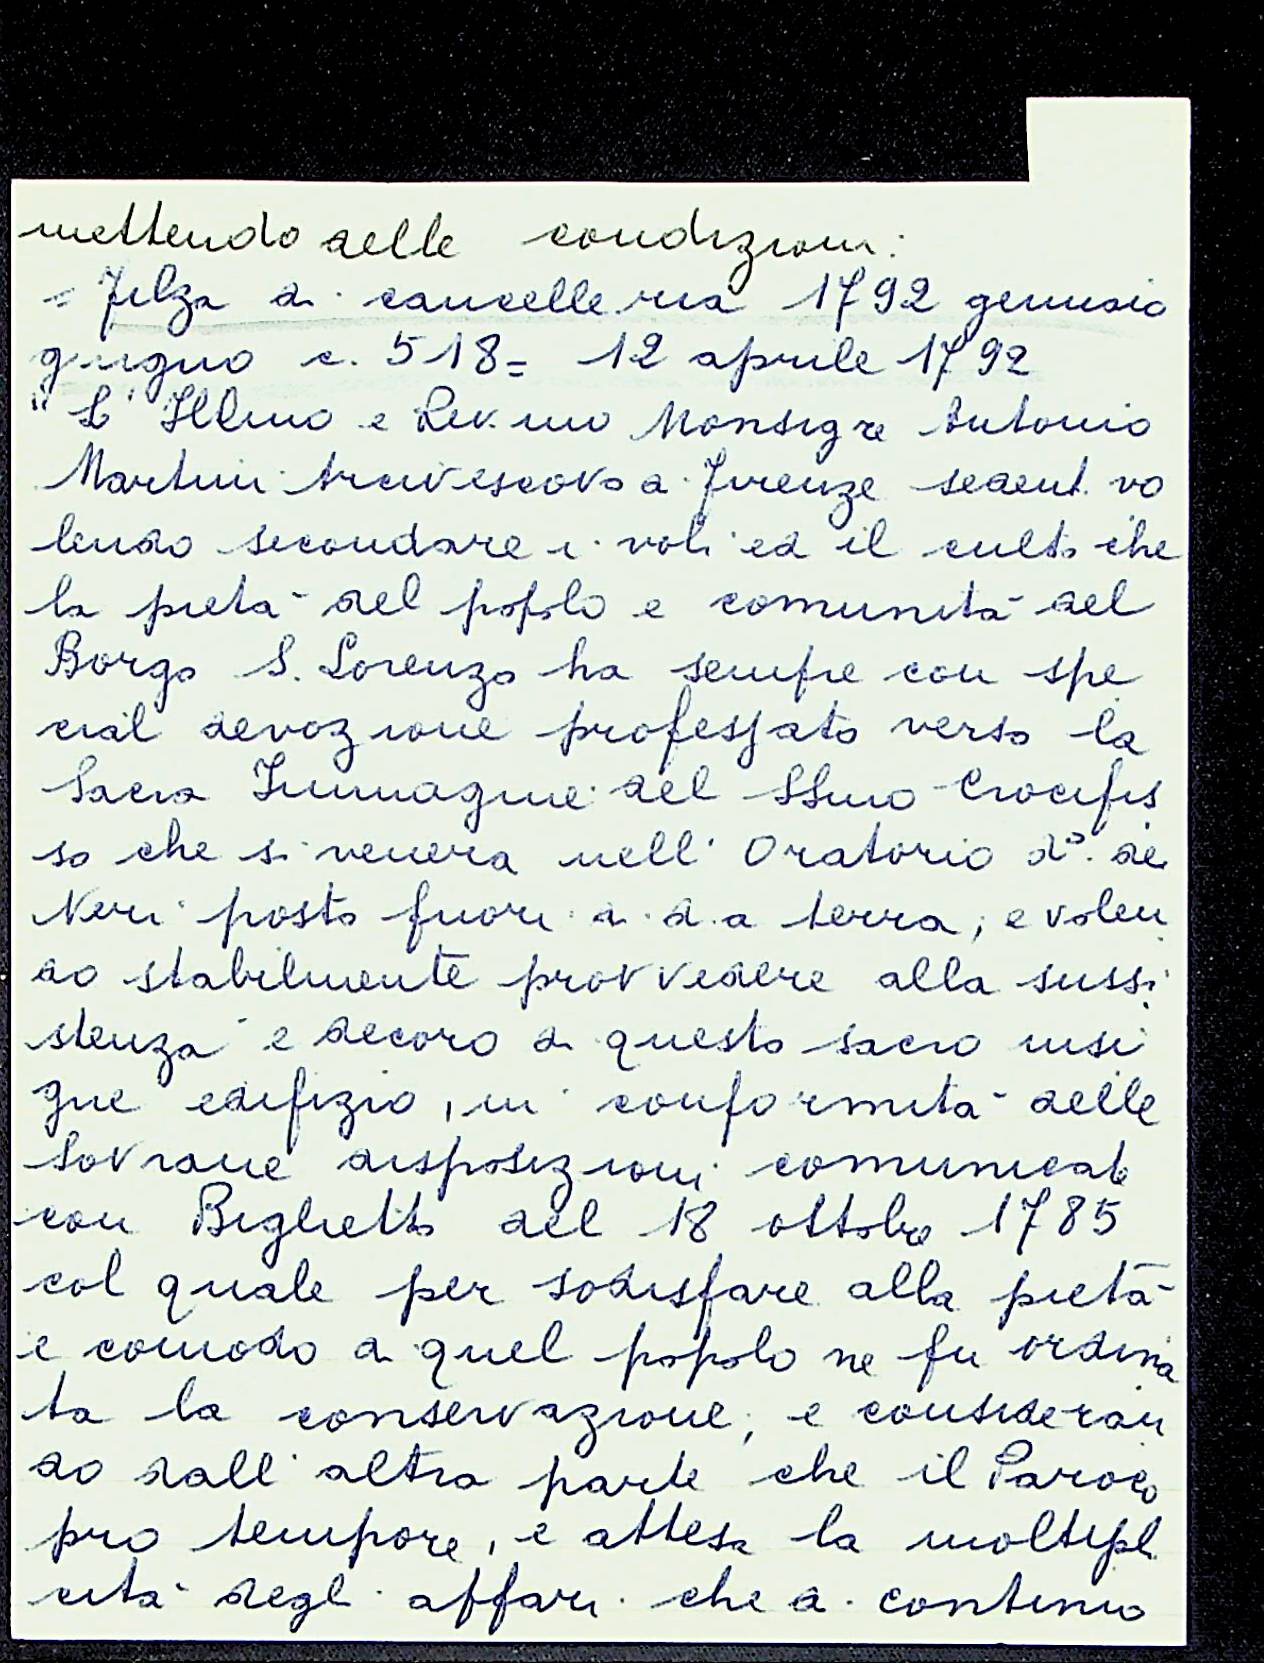 mettendo delle condizioni:
= Filza di cancelleria 1792 gennaio
giugno c. 518= 12 aprile 1792
"L'Illmo e Rev.mo Monsigre Antonio
Martini Arcivescovo di Firenze sedent. vo
lendo secondare i voti ed il culto che
la pietà del popolo e comunità del
Borgo S. Lorenzo ha sempre con spe
cial devozione professato verso la
Sacra Immagine del SSmo Crocifis
so che si venera nell'Oratorio do. dei
Neri posto fuori di d.a terra, e volen
do stabilmente provvedere alla sussi
stenza e decoro di questo sacro insi
gne edifizio, in conformità delle
Sovrane disposizioni comunicate
con Biglietto del 18 ottobre 1785
col quale per sodisfare alla pietà
e comodo di quel popolo ne fu ordina
ta la conservazione, e consideran
do dall'altra parte che il Paroco
pro tempore, e attesa la moltipl
cità degli affari che di continuo